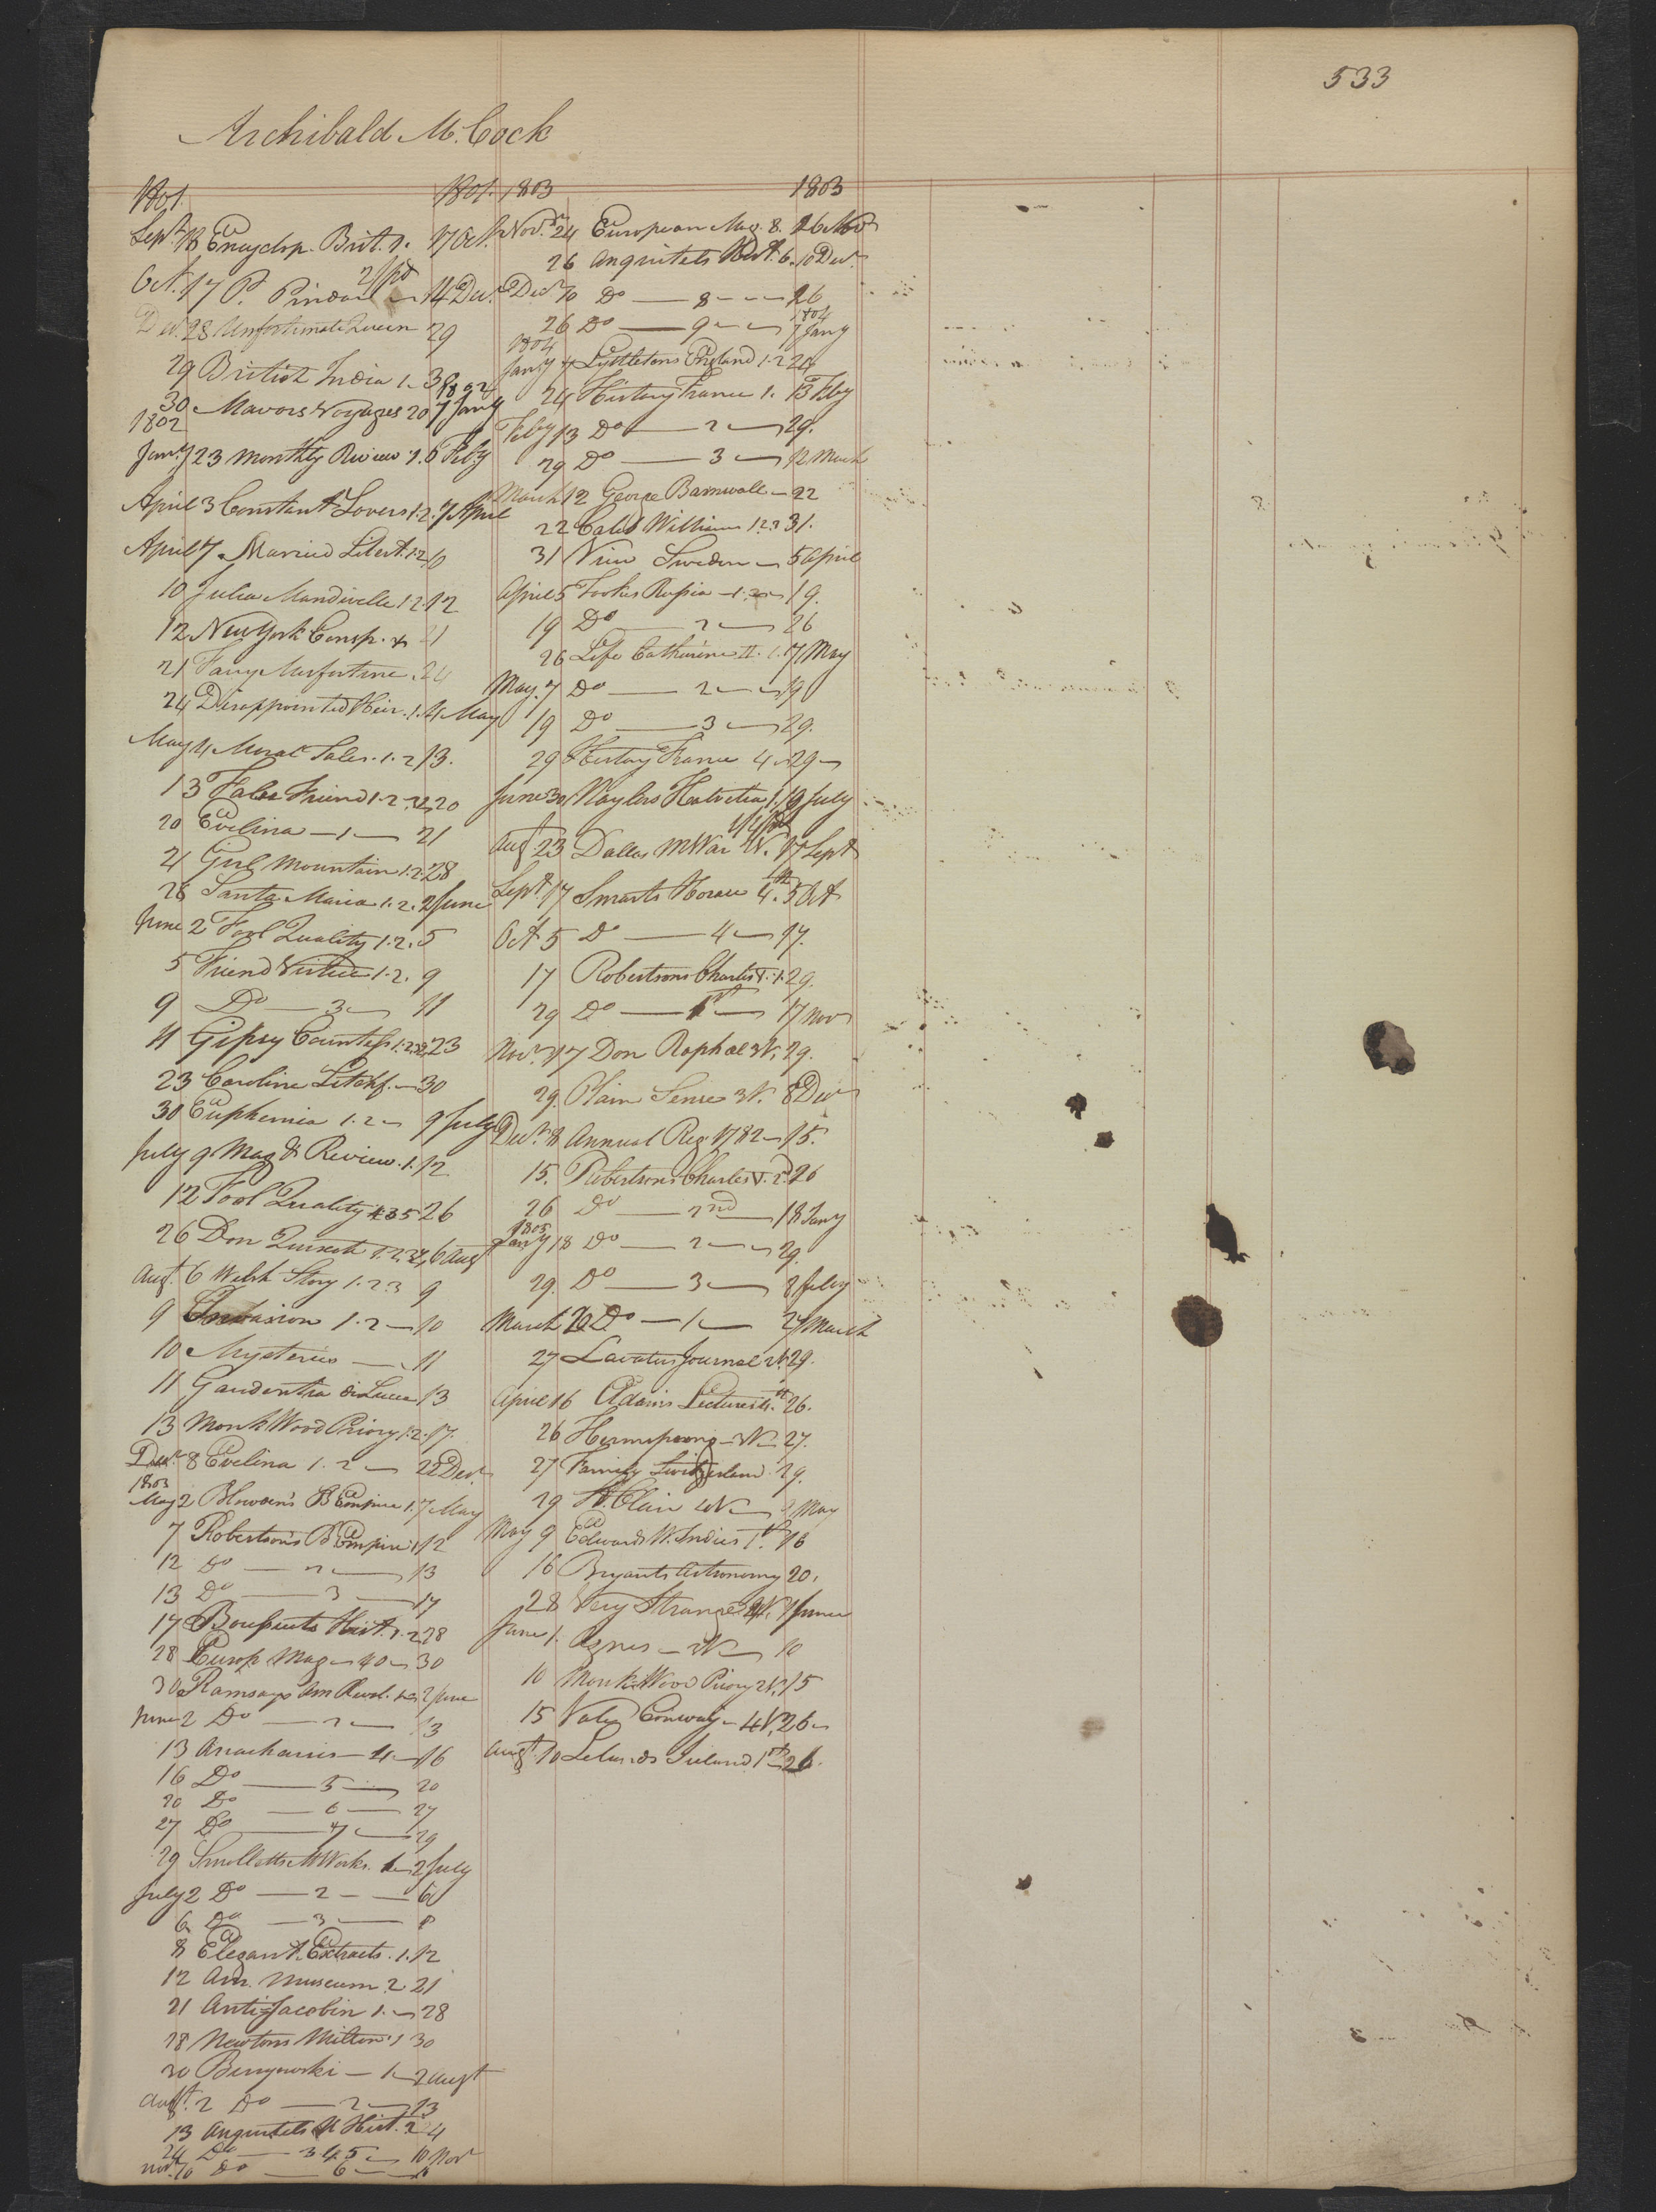 533
Archibald McCock
1801. 1801.
Sept. 18 Encyclop. Brit. 1. 17 Oct.
Oct. 17 P. Pindar 2d pt 14 Dec.
Dec. 28 Unfortunate Queen 29
29 British India 1. 3
30 Mavors Voyages 20 7 Jany
1802 1802
Jany 23 Monthly Review 1. 6 Feby
April 3 Constant Lovers 1.2. 7 April
April 7 Married Libert. 1.2 10
10 Julia Mandivelle 1.2. 12
12 New York Consp. 21
21 Fany Misfortune. 24
24 Disappointed Heir. 1. 4 May
May 4 Moral Tales. 1.2 13.
13 False Friend 1.2. 20
20 Evelina — 1 — 21
21 Girl Mountain 1.2. 28
28 Santa Maria 1.2. 2 June
June 2 Fool Quality 1.2. 5
5 Friend Virtue 1.2. 9
9 Do — 3 — 11
11 Gipsy Countess 1.2. 23
23 Caroline Litchf. — 30
30 Euphemia 1.2 — 9 July
July 9 Mag & Review. 1. 12
12 Fool Quality 4 3 5 26
26 Don Quixote 1.2. 6 Augt
Augt. 6 Welsh Story 1.2 3 9
9 Invasion 1.2 — 10
10 Mysteries — 11
11 Gaudentia di Lucca 13
13 Monk Wood Priory 1.2. 17.
Decr 8 Evelina 1.2 — 22 Decr.
1803
May 2 Empire 1. 7 May
7 Robertson's Empire 1 12
12 Do — 2 — 13
13 Do — 3 — 17
17 Hist. 1.2 28
28 Europ Mag — 40 — 30
30 Ramsays Am Revol. 2 June
June 2 Do — 2 — 13
13 Anacharsis — 4 — 16
16 Do — 5 — 20
20 Do — 6 — 27
27 Do — 7 — 29
29 Smolletts Works. 1 — 2 July
July 2 Do — 2 — 6
6 Do — 3 — 8
8 Elegant Extracts. 1. 12
12 Am. Museum 2. 21
21 Anti=Jacobin 1. — 28
28 Newtons Milton 1 30
30 Benyowski — 1 — 2 Augt
Augt. 2 Do — 2 — 13
13 Anquitels U Hist. 2 24
24 Do — 3 4 5 — 10 Nov
Nov. 10 Do — 6 —
1803 1803
Novr. 24 European Mag. 8. 26 Nov
26 Anquitels Hist. 6. 10 Decr.
Decr 10 Do — 8 — 26
26 Do — 9 — 7 Jany
1804 1804
Jany 7 Lyttletons England 1.2 24
24 History France 1. 13 Feby
Feby 13 Do — 2 — 29.
29 Do — 3 — 12 March
March 12 George Barnwall — 22
22 Caleb Williams 1.2.3 31.
31 View Sweden — 5 April
April 5 Tookes Russia — 1. — 19.
19 Do — 2 — 26
26 Life Catharine II. 1. 7 May
May. 7 Do — 2 — 19
19 Do — 3 — 29.
29 History France 4 — 29 —
June 30 Naylors Helvetia 1. 19 July
Augt 23 Dallas M War V. 17 Sept
Sept 17 Smarts Horace 4. 5 Oct
Oct 5 Do — 4 — 17.
17 Robertsons Charles V. 1. 29.
29 Do — 1st — 17 Nov
Novr. 17 Don Raphael 3V. 29.
29. Plain Sense 3V. 8 Decr
Decr. 8 Annual Reg. 1782 — 15.
15. Robertsons Charles V. 2. 26
26 Do — 2nd — 18 Jany
1805
Jany 18 Do — 2 — 29.
29. Do — 3 — 8 Feby
March 20 Do — 1 — 27 March
27 Lavaters Journal 29.
April 16 Adams Lectures 26.
26 Hermsprong — 3V — 27.
27 Family Switzerland. 29.
29 St. Clair 4V — May
May 9 Edwards W. Indies 1st. 16
16 Bryants Astronomy 20.
28 Very Strange 1 June
June 1. Agnes — 3V — 10
10 Monk Wood Priory 2V. 15
15 Valey Conway — 4V. 26 —
Augt. 10 Lelands Ireland 1st — 26.